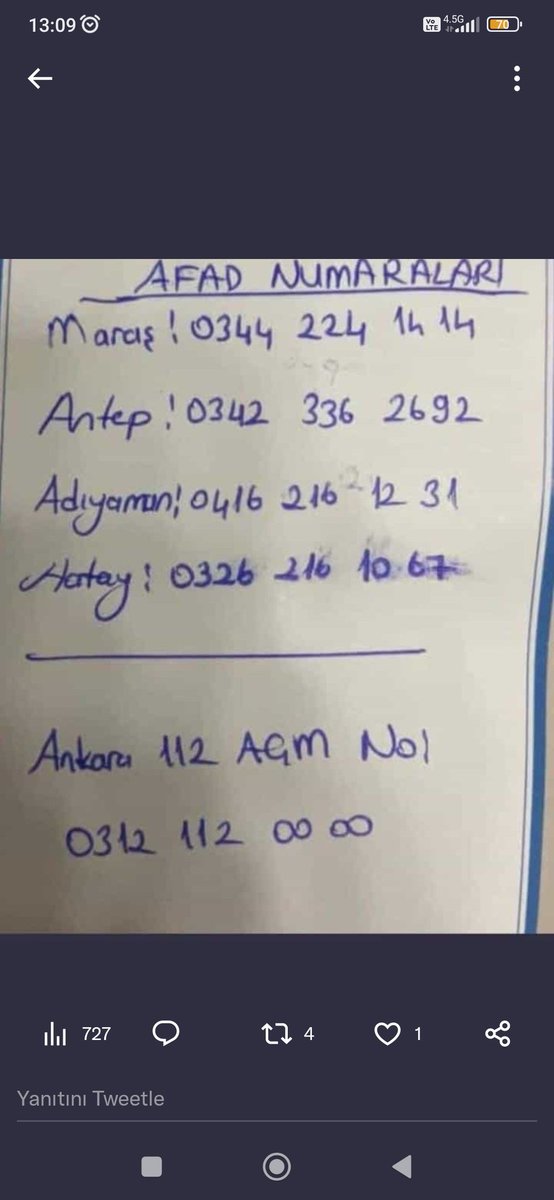 13:09
Vo LTE 4.5G 70
AFAD NUMARALARI
Maraş! 0344 224 14 14
Antep! 0342 336 2692
Adıyaman! 0416 216 12 31
Hatay! 0326 216 10 67
Ankara 112 AGM No!
0312 112 00 00
727 4 1
Yanıtını Tweetle